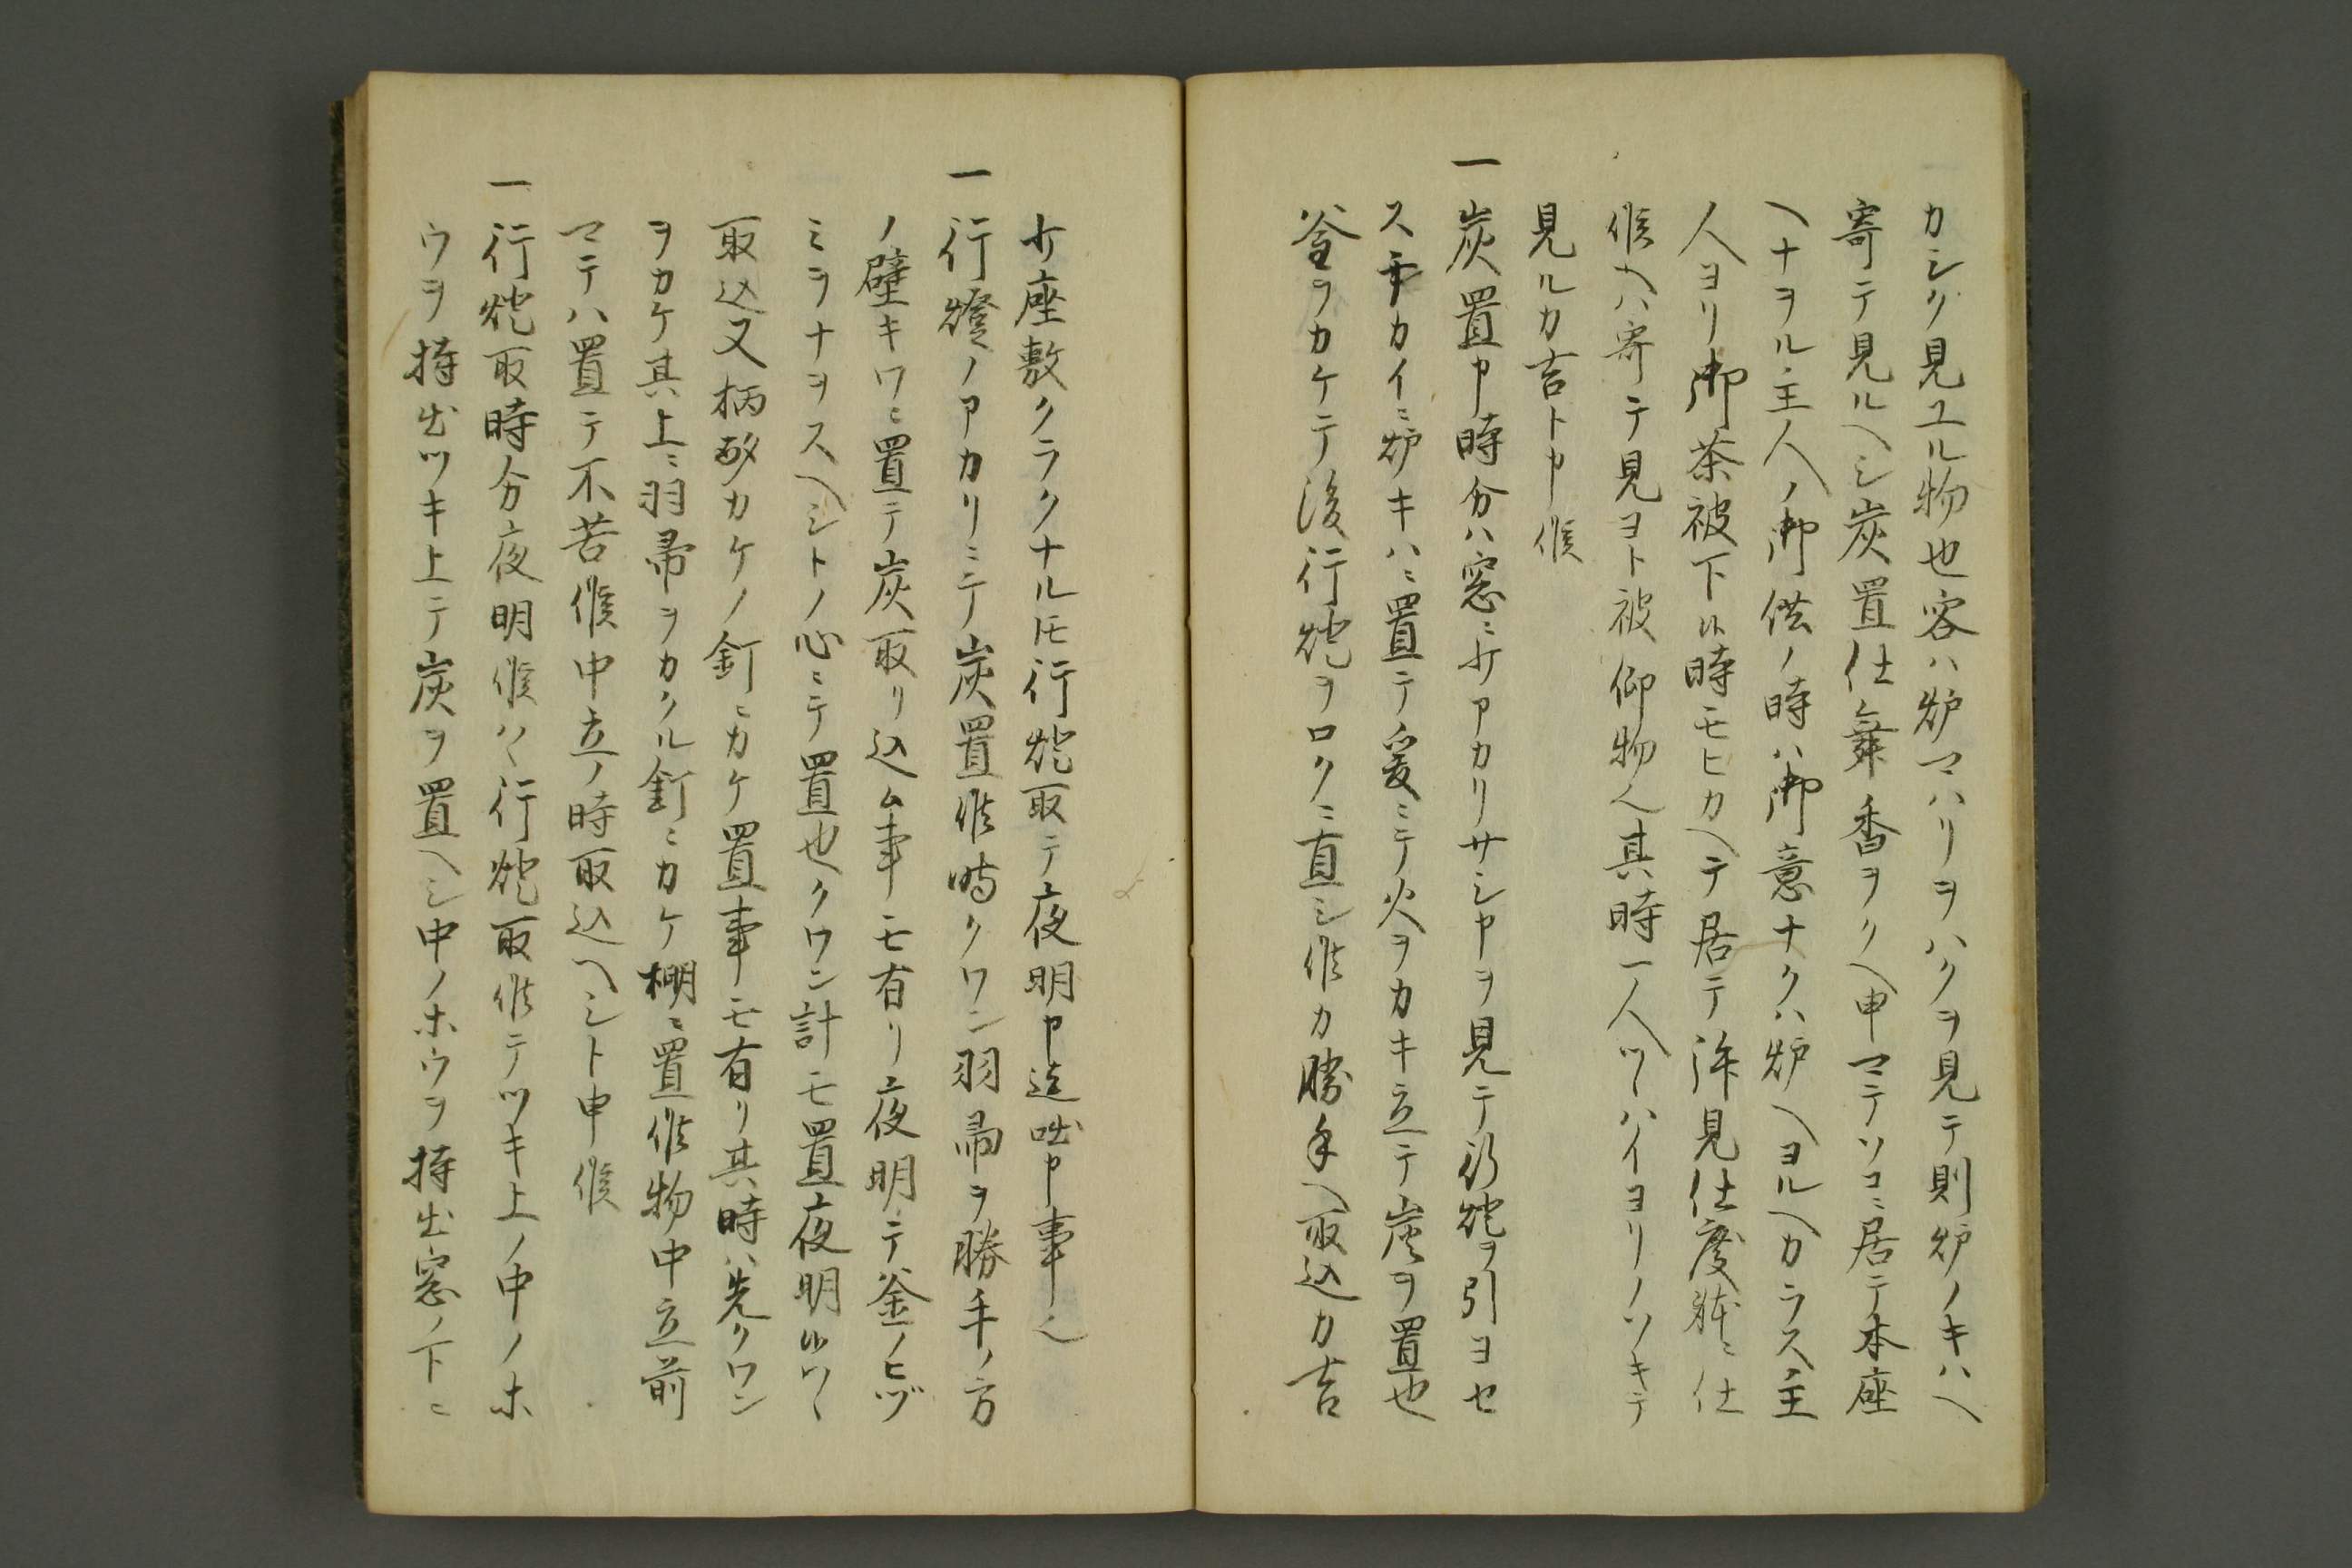 カシク見ユル物也客ハ炉マハリヲハクヲ見テ則炉ノキハヘ
寄テ見ルヘシ炭置仕舞香ヲクヘ申マテソコニ居テ本座
ヘナヲル主人ノ御供ノ時ハ御意ナクハ炉ヘヨルヘカラス主
人ヨリ御茶被下候時モヒカヘテ居テ拝見仕度躰ニ仕
候ヘハ寄テ見ヨト被仰物也其時一人ツヽハイヨリノソキテ
見ルカ吉ト申候
一炭置申時分ハ窓ニサアカリサシ申ヲ見テ行燈ヲ引ヨセ
スチカイニ炉キハニ置テ爰ニテ火ヲカキ立テ炭ヲ置也
釜ヲカケテ後行燈ヲロクニ直シ候カ勝手ヘ取込カ吉
サ座敷クラクナル𪜈行燈取テ夜明申迄咄申事也
一行燈ノアカリニテ炭置候時クワン羽帚ヲ勝手ノ方
ノ壁キワニ置テ炭取リ込ム事モ有リ夜明テ釜ノヒヅ
ミヲナヲスヘシトノ心ニテ置也クワン計モ置夜明候ツヽ
取込又柄杓カケノ釘ニカケ置事モ有リ其時ハ先クワン
ヲカケ其上ニ羽帚ヲカクル釘ニカケ棚ニ置候物中立前
マテハ置テ不苦候中立ノ時取込ヘシト申候
一行燈取時分夜明候ハヽ行燈取候テツキ上ノ中ノホ
ウヲ持出ツキ上テ炭ヲ置ヘシ中ノホウヲ持出窓ノ下ニ